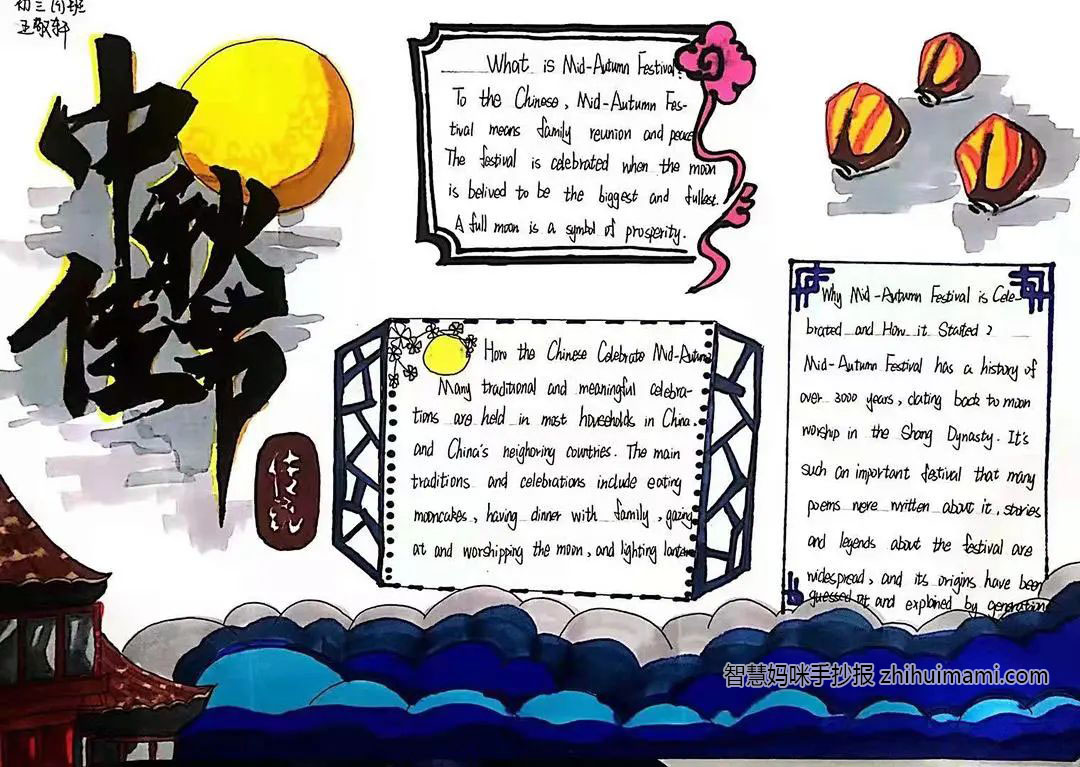 初三(1)班
王敬轩
中秋
佳节
传统
What is Mid-Autumn Festival?
To the Chinese, Mid-Autumn Fes-
tival means family reunion and peace
The festival is celebrated when the moon
is belived to be the biggest and fullest.
A full moon is a symbol of prosperity.
How the Chinese Celebrate Mid-Autumn
Many traditional and meaningful celebra-
tions are held in most households in China.
and China's neighoring countries. The main
traditions and celebrations include eating
mooncakes, having dinner with family, gazing
at and worshipping the moon, and lighting lantern
Why Mid-Autumn Festival is Cele-
brated and How it Started?
Mid-Autumn Festival has a history of
over 3000 years, dating back to moon
worship in the Shang Dynasty. It's
such an important festival that many
poems were written about it, stories
and legends about the festival are
widespread, and its origins have been
guessed at and explained by generation
智慧妈咪手抄报 zhihuimami.com